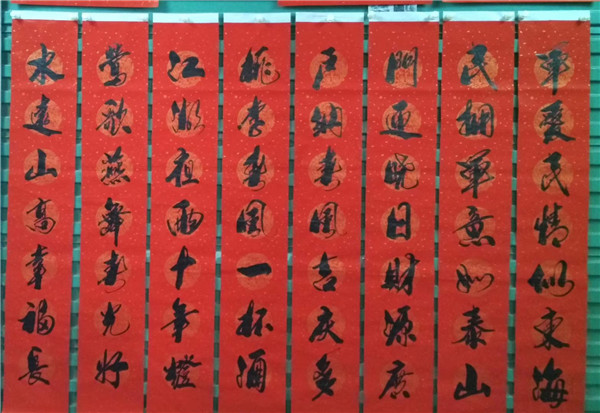 军爱民情似东海
民拥军意如泰山
門迎晓日财源广
户纳春風吉庆多
桃李春風一杯酒
江湖夜雨十年燈
莺歌燕舞春光好
水远山高幸福长